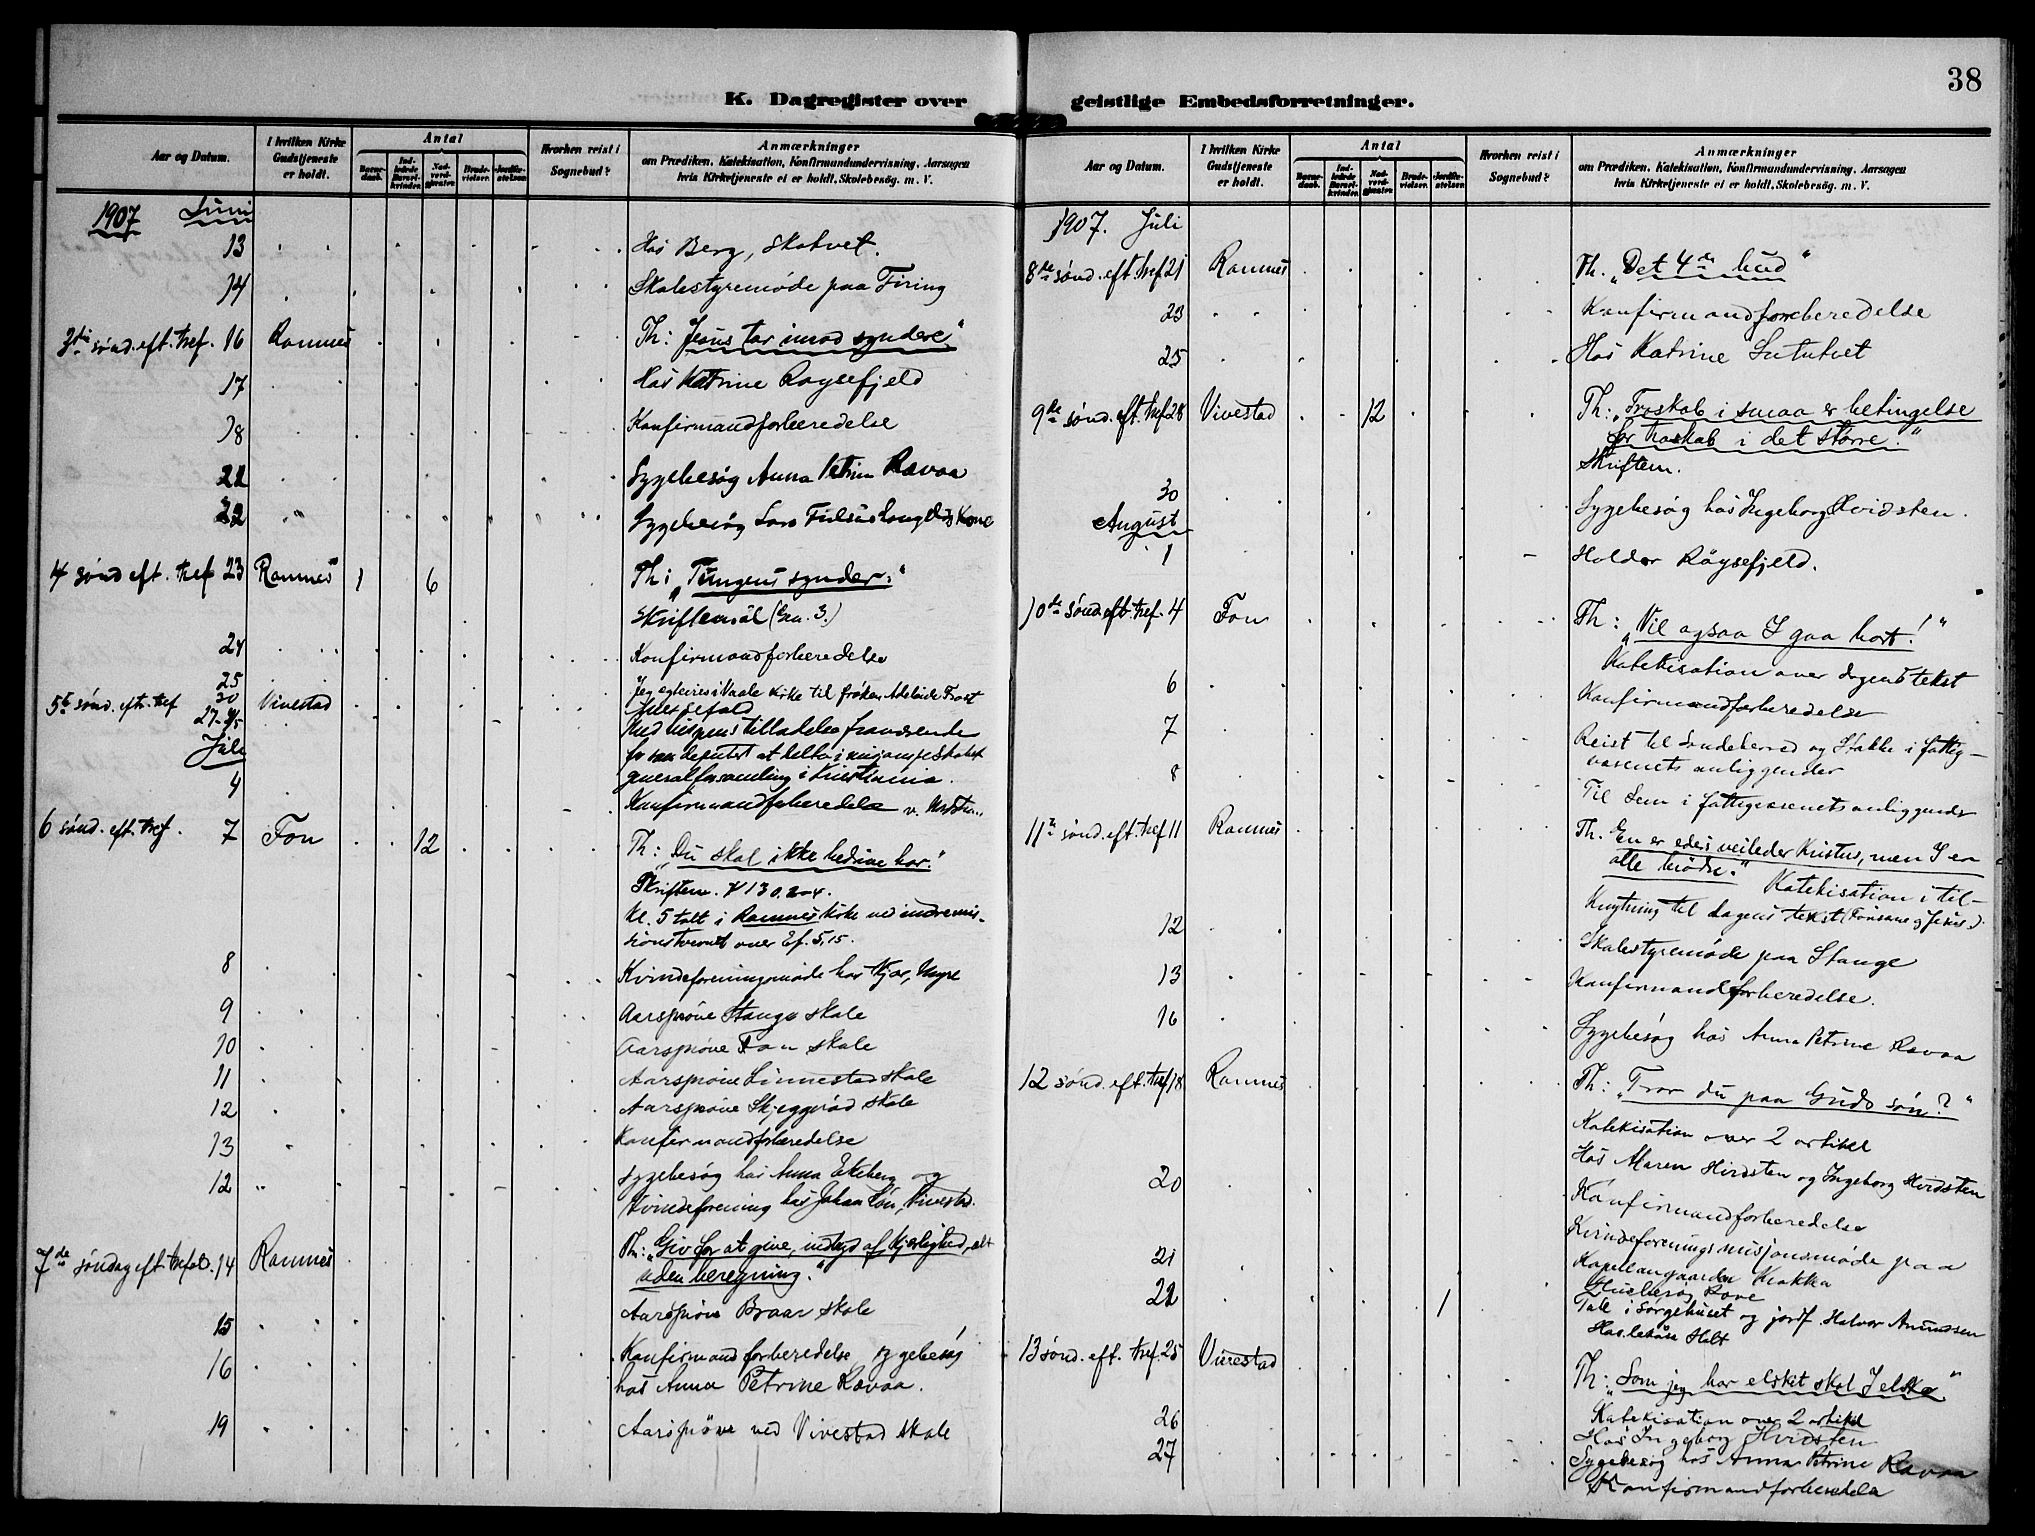 38
K. Dagregister over geistlige Embedsforretninger.
Aar og Datum. I hvilken Kirke Gudstjeneste er holdt. Antal Barnedaab. Indledede Barselkvinder. Nadverdgjester. Brudevielser. Jordfæstelser. Hvorhen reist i Sognebud? Anmærkninger
om Prædiken, Katekisation, Konfirmandundervisning, Aarsagen
hvis Kirketjeneste ei er holdt, Skolebesög, m. V.
1907 Juni
13 Hos Berg, Skatvet.
14 Skolestyremøde paa Firing
3die sønd. eft. tref. 16 Ramnes Th: "Jesus tar imod syndere"
17 Hos Katrine Røysefjeld
18 Konfirmandforberedelse
21 Sygebesøg Anna Petrine Ravaa
22 Sygebesøg Lars Kone
4 sønd eft. tref 23 Ramnes 1 6 Th: "Tungens synder."
Skriftemål
24 Konfirmandforberedelse
25 Jeg i Vaale kirke til frøken Adelaide
5te sønd. eft. tref 30 Vivestad
27-
Juli
Med bispens tilladelse fraværende
for som deputert at delta i misjonsselskabet
generalforsamling i Kristiania.
4 Konfirmandforberedelse v.
6 sønd. eft. tref. 7 Fon 12 Th: "Du skal ikke bedrive hor."
Skriftem. 130.
Kl. 5 talt i Ramnes kirke ved indremis-
sionsstevnet over Ef. 5,15.
8 Kvindeforeningsmøde hos Myre
9 Aarsprøve Stange skole
10 Aarsprøve Fon skole
11 Aarsprøve Linnestad skole
12 Aarsprøve Skjeggerød skole
13 Konfirmandforberedelse
12 Sygebesøg hos Anna Ekeberg og
Kvindeforening hos Johan Vivestad.
7de søndag eft. trefol. 14 Ramnes Th: "Giv for at give, indtryd af kjerlighed, alt
uden beregning."
15 Aarsprøve Braar skole
16 Konfirmandforberedelse, sygebesøg
hos Anna Petrine Ravaa.
19 Aarsprøve ved Vivestad skole
Aar og Datum. I hvilken Kirke Gudstjeneste er holdt. Antal Barnedaab. Indledede Barselkvinder. Nadverdgjester. Brudevielser. Jordfæstelser. Hvorhen reist i Sognebud? Anmærkninger
om Prædiken, Katekisation, Konfirmandundervisning, Aarsagen
hvis Kirketjeneste ei er holdt, Skolebesög, m. V.
1907. Juli
8de sønd. eft. tref 21 Ramnes Th. "Det 4de bud"
23 Konfirmandforberedelse
25 Hos Katrine
9de sønd. eft. tref 28 Vivestad 12 Th: "Troskab i smaa er betingelse
for troskab i det større."
Skriftem.
30 Sygebesøg hos Ingeborg Hvidsten.
August
1 Holder Røysefjeld.
10de sønd. eft. tref. 4 Fon Th: "Vil ogsaa I gaa bort!"
Katekisation over dagens tekst
6 Konfirmandforberedelse
7 Reist til Sandeherred og Stokke i fattig-
væsenets anliggender
8 Til Sem i fattigvæsenets anliggende
11te sønd. eft. tref 11 Ramnes Th. En er eders veileder Kristus, men I er
alle brødre." Katekisation i til-
knytning til dagens tekst
12 Skolestyremøde paa Stange
13 Konfirmandforberedelse.
16 Sygebesøg hos Anna Petrine Ravaa
12 sønd. eft. tref 18 Ramnes Th: "Tror du paa Guds søn?"
Katekisation over 2 artikel
20 Hos Maren Hvidsten og Ingeborg Hvidsten
Konfirmandforberedelse
21 Kvindeforenings misjonsmøde paa
Kapellangaarden Krakka
22 1 Tale i sørgehuset og jordf. Halvor Amundsen
Holt
13 sønd. eft. tref. 25 Vivestad Th: "Som jeg har elsket skal I elske."
Katekisation over 2 artikel
26 Hos Ingeborg Hvidsten
27 Sygebesøg hos Anna Petrine Ravaa
Konfirmandforberedelse